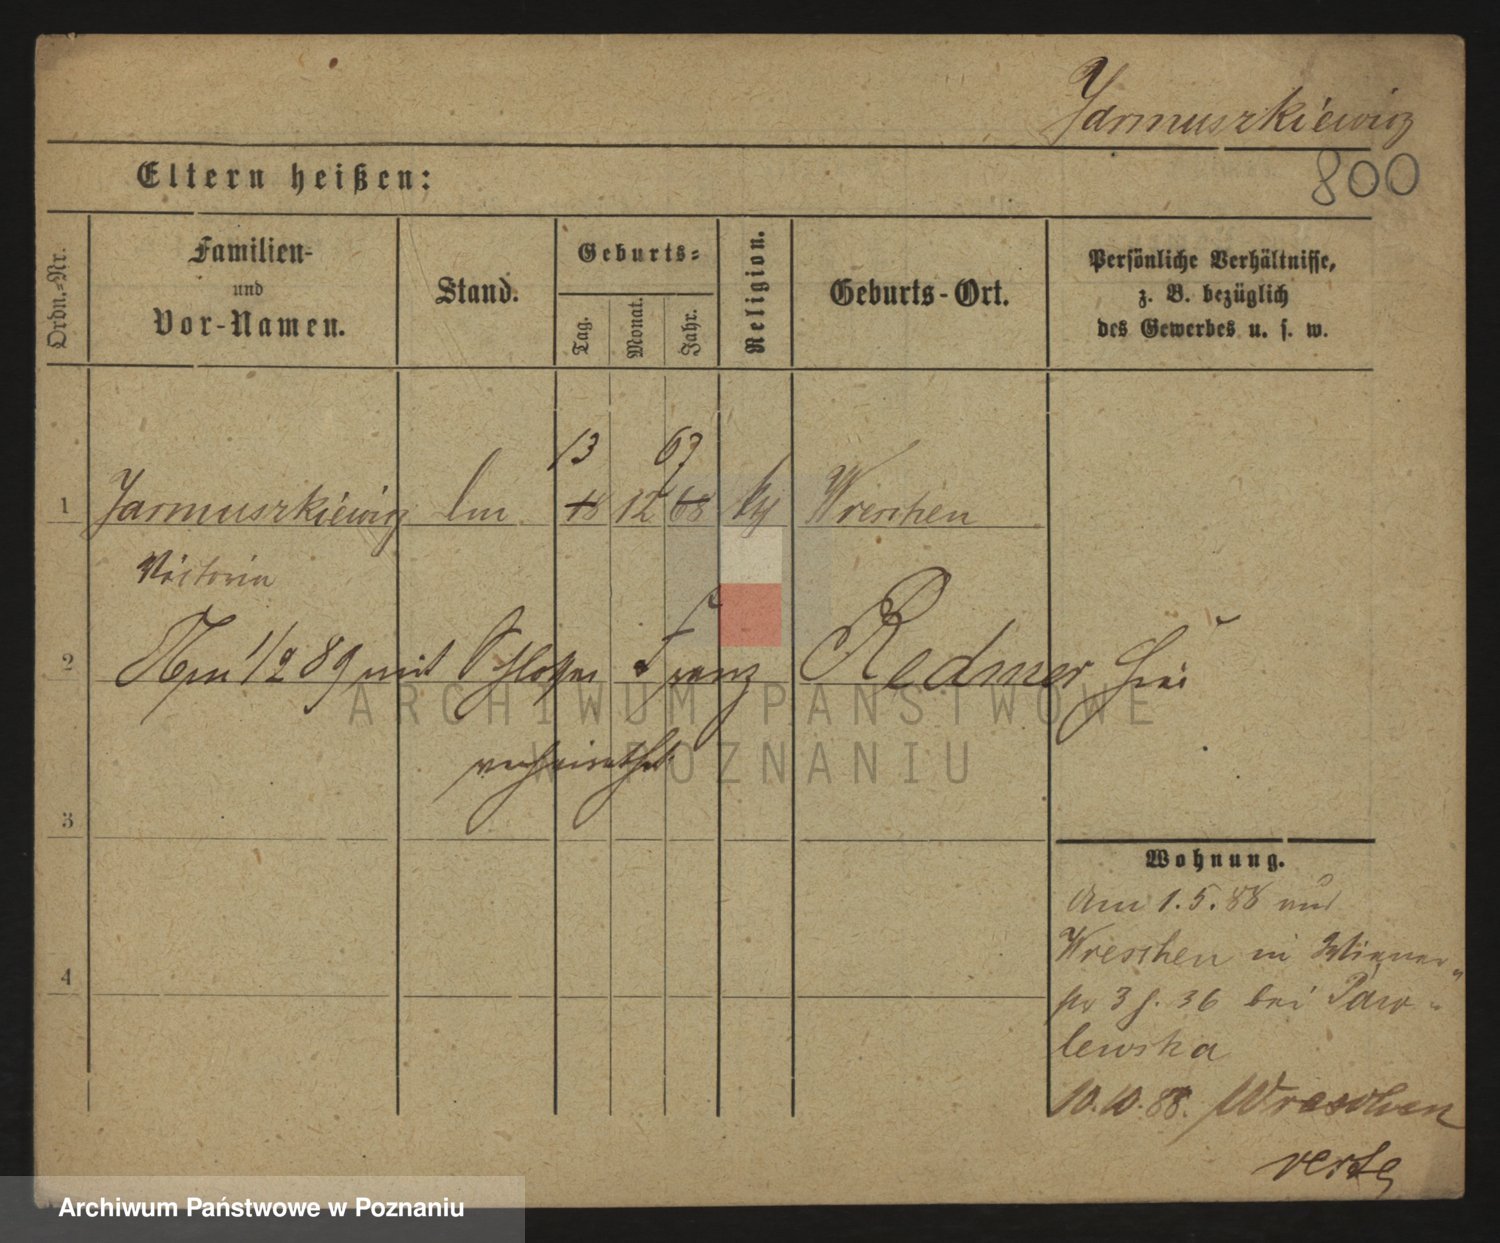 Jarmuszkiewicz
800
Eltern heißen:
Ordn.-Nr.
Familien-
und
Vor-Namen.
Stand.
Geburts-
Tag.
Monat.
Jahr.
Religion.
Geburts-Ort.
Persönliche Verhältnisse,
z. B. bezüglich
des Gewerbes u. s. w.
13 67
1 Jarmuszkiewicz 18 12 68 Wreschen
Victoria
2 1/2 89 mit Schlosser Franz Redmer hier
verheirathet
3
Wohnung.
Am 1.5.88 aus
Wreschen in
3 36 bei Paw-
lewska
4
10.10.88. Wreschen
verte
ARCHIWUM PAŃSTWOWE
W POZNANIU
Archiwum Państwowe w Poznaniu